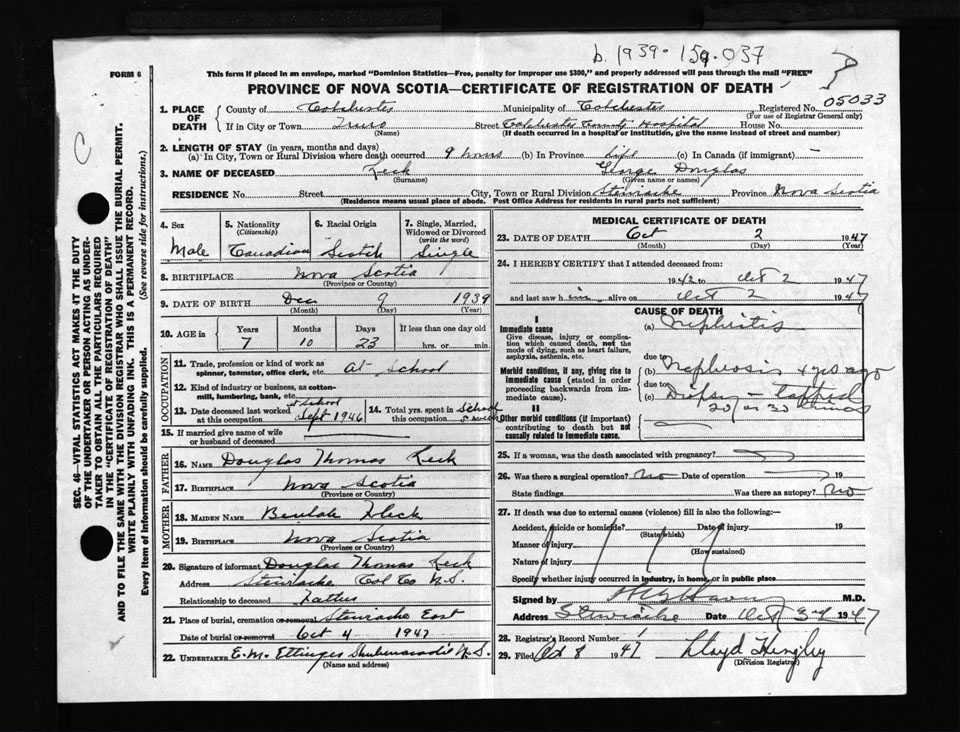 b. 1939-159-037
FORM 6
This form if placed in an envelope, marked "Dominion Statistics—Free, penalty for improper use $300," and properly addressed will pass through the mail "FREE"
PROVINCE OF NOVA SCOTIA—CERTIFICATE OF REGISTRATION OF DEATH
1. PLACE OF DEATH County of Colchester Municipality of Colchester Registered No. 05033
(For use of Registrar General only)
If in City or Town Truro Street Colchester County Hospital House No.
(Name) (If death occurred in a hospital or institution, give the name instead of street and number)
2. LENGTH OF STAY (in years, months and days)
(a) In City, Town or Rural Division where death occurred 9 hours (b) In Province Life (c) In Canada (if immigrant) —
3. NAME OF DECEASED George Douglas
(Surname) (Given name or names)
RESIDENCE No. Street City, Town or Rural Division Stewiacke Province Nova Scotia
(Residence means usual place of abode. Post Office Address for residents in rural parts not sufficient)
4. Sex 5. Nationality (Citizenship) 6. Racial Origin 7. Single, Married, Widowed or Divorced (write the word)
Male Canadian Scotch Single
8. BIRTHPLACE Nova Scotia
(Province or Country)
9. DATE OF BIRTH Dec 9 1939
(Month) (Day) (Year)
10. AGE in Years Months Days If less than one day old
7 10 23 hrs. or min.
OCCUPATION
11. Trade, profession or kind of work as spinner, teamster, office clerk, etc. at school
12. Kind of industry or business, as cotton-mill, lumbering, bank, etc.
13. Date deceased last worked at this occupation at school Sept 1946
14. Total yrs. spent in this occupation School
15. If married give name of wife or husband of deceased
FATHER
16. NAME Douglas Thomas
17. BIRTHPLACE Nova Scotia
(Province or Country)
MOTHER
18. MAIDEN NAME Beulah
19. BIRTHPLACE Nova Scotia
(Province or Country)
20. Signature of informant Douglas Thomas
Address Stewiacke Col Co N.S.
Relationship to deceased Father
21. Place of burial, cremation or removal Stewiacke East
Date of burial or removal Oct 4 1947
22. UNDERTAKER E.M. Ettinger Shubenacadie N.S.
(Name and address)
MEDICAL CERTIFICATE OF DEATH
23. DATE OF DEATH Oct 2 1947
(Month) (Day) (Year)
24. I HEREBY CERTIFY that I attended deceased from:
1942 to Oct 2 1947
and last saw him alive on Oct 2 1947
CAUSE OF DEATH
I
Immediate cause (a) Nephritis
Give disease, injury or complication which caused death, not the mode of dying, such as heart failure, asphyxia, asthenia, etc.
due to
Morbid conditions, if any, giving rise to immediate cause (stated in order proceeding backwards from immediate).
(b) Nephrosis 4 yrs ago
due to
(c) Dropsy — tapped
20 or 30 times
II
Other morbid conditions (if important) contributing to death but not causally related to immediate cause.
25. If a woman, was the death associated with pregnancy?
26. Was there a surgical operation? No Date of operation 19
State findings Was there an autopsy? No
27. If death was due to external causes (violence) fill in also the following:—
Accident, suicide or homicide? Date of injury 19
(State which)
Manner of injury
(How sustained)
Nature of injury
Specify whether injury occurred in industry, in home, or in public place
Signed by M.D.
Address Stewiacke Date Oct 3rd 1947
28. Registrar's Record Number 1
29. Filed Oct 8 1947 Lloyd Hingley
(Division Registrar)
SEC. 46—VITAL STATISTICS ACT MAKES IT THE DUTY
OF THE UNDERTAKER OR PERSON ACTING AS UNDER-
TAKER TO OBTAIN ALL THE PARTICULARS REQUIRED
IN THE "CERTIFICATE OF REGISTRATION OF DEATH"
AND TO FILE THE SAME WITH THE DIVISION REGISTRAR WHO SHALL ISSUE THE BURIAL PERMIT.
WRITE PLAINLY WITH UNFADING INK. THIS IS A PERMANENT RECORD.
Every item of information should be carefully supplied. (See reverse side for instructions.)